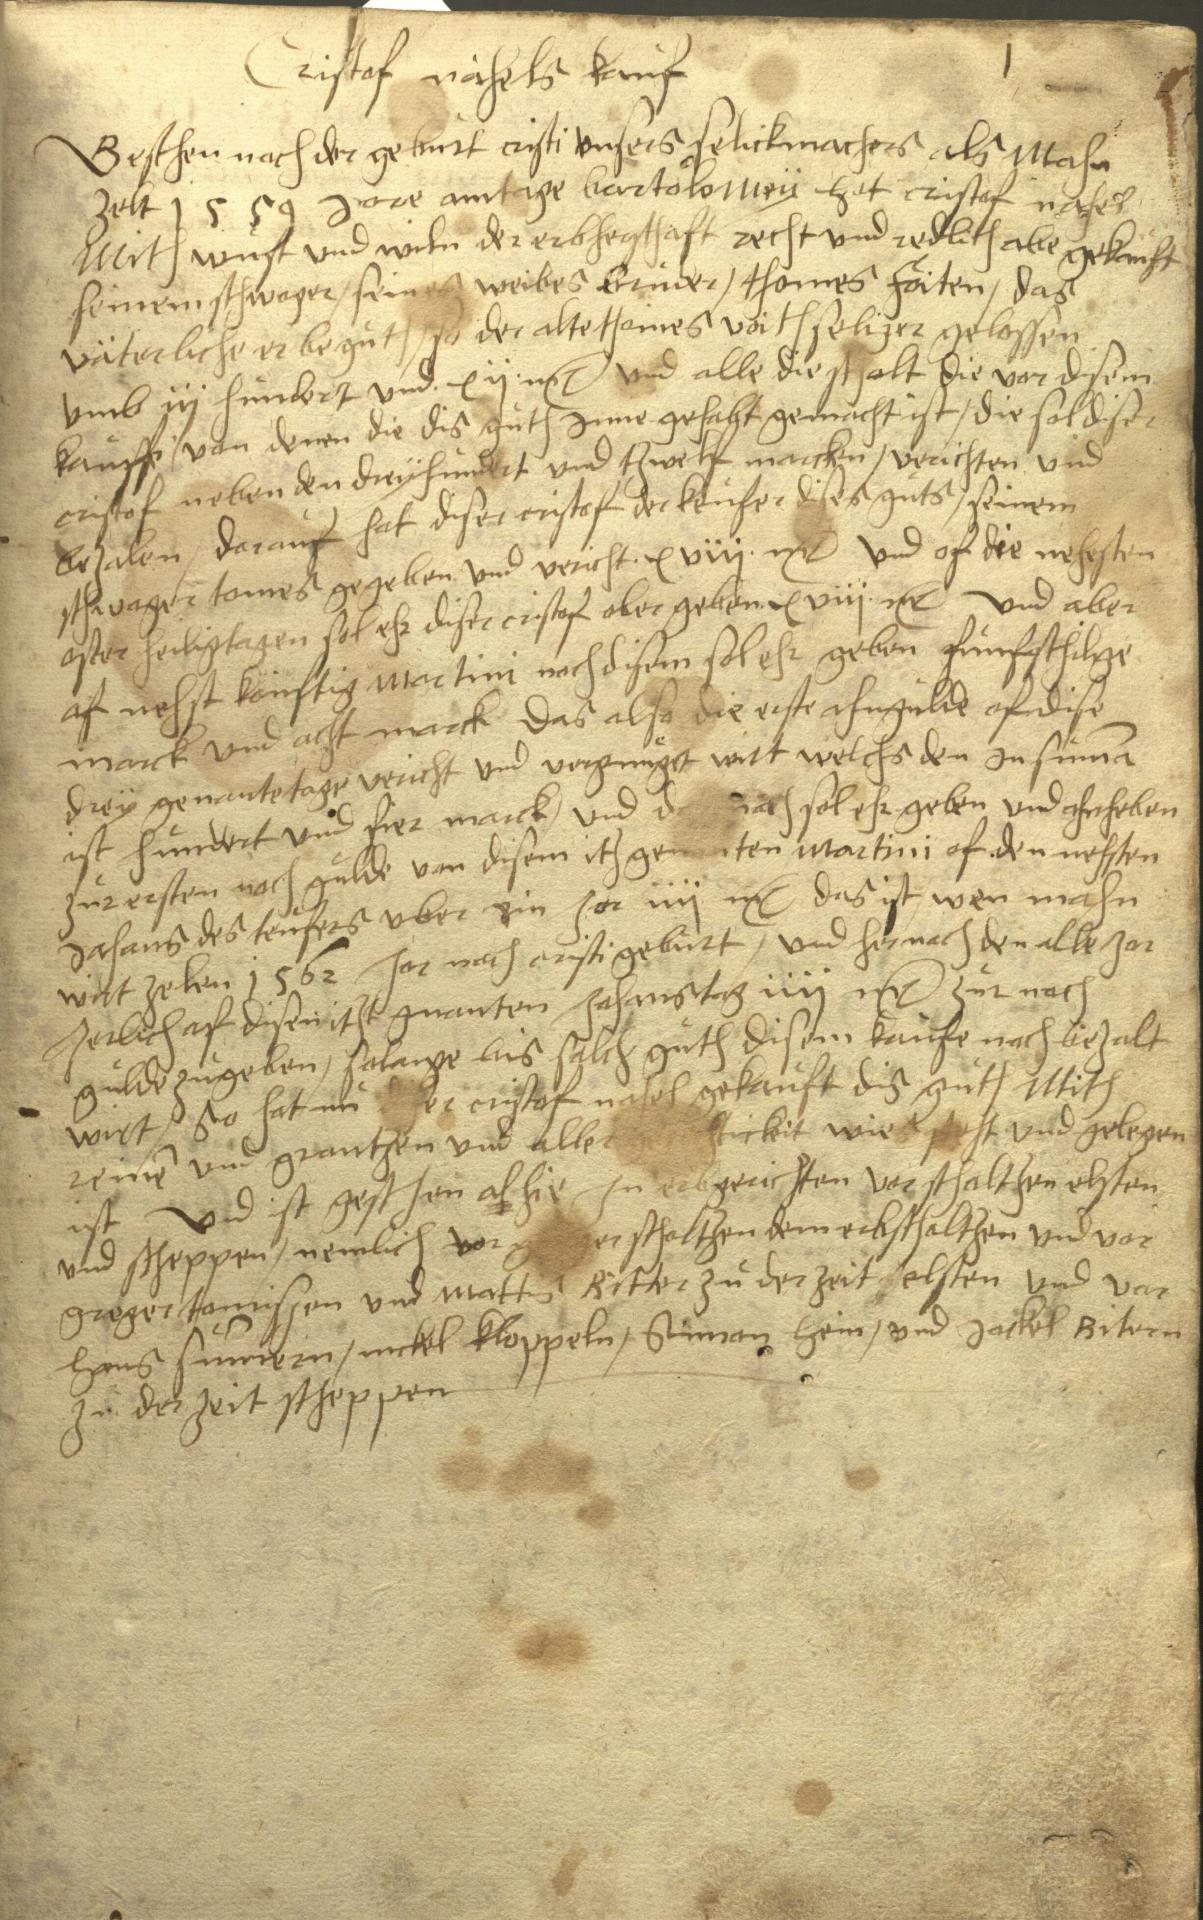 Cristof nähels kauf
1
Beschen nach der geburt cristi unsers selickmachers als Mahn
zelt 1559 Jare am tage bartolomeÿ hat cristof nähel
Mith wust und wiln der erbherschaft recht und redlich abe gekauft
seinem schwager / seines weibes bruder / thomes foiten / das
väterliche erbegut / so der alte thomes voith seliger gelossen
umb iij hundert und xij mr und alle die scholt die vor disem
kauffe / von denen die dis guth Inne gehabt gemacht ist / die sol diser
cristof neben den dreÿhundert und zwelf marcken / verichten und
bezalen / darauf hat diser cristof der keufer dises guts / seinem
schwager tomes gegeben und vericht xviij mr und of die nehesten
oster heiligtagen sol ehr diser cristof aber geben xviij mr und aber
of nehst konftig Martini nach disem sol ehr geben funfschilge
marck und acht marck das also die erste ahngulde of dise
dreÿ genante tage vericht und vergnuget wirt welchs den In suma
ist hundert und fier marck / und nach sol ehr geben und ahnheben
zur ersten nach gulde von disem itz genanten Martini of den nehsten
Johans des teufers uber ein Jor iiij mr das ist / wen mahn
wirt zelen 1562 Jor nach cristi geburt / und hernach den alle Jor
Jerlich of disen itzt gnanten Johanstag iiij mr zur nach
gulde zu geben / solange bis solch guth disem kaufe nach bezalt
wirt / So hat nu cristof nahel gekauft dis guth Mith
reinen und grantzen und aller wie steht und gelegen
ist Und ist geschen alhie In erbgerichten vor scholtzen elsten
und scheppen / nemlich vor scholtzen dem erbscholtzen und vor
greger tomissen und Mattis Ritter zu der zeit elsten und vor
hans sumern / nickel kloppeln / Simon hein / und Jackel Ritern
zu der zeit scheppen